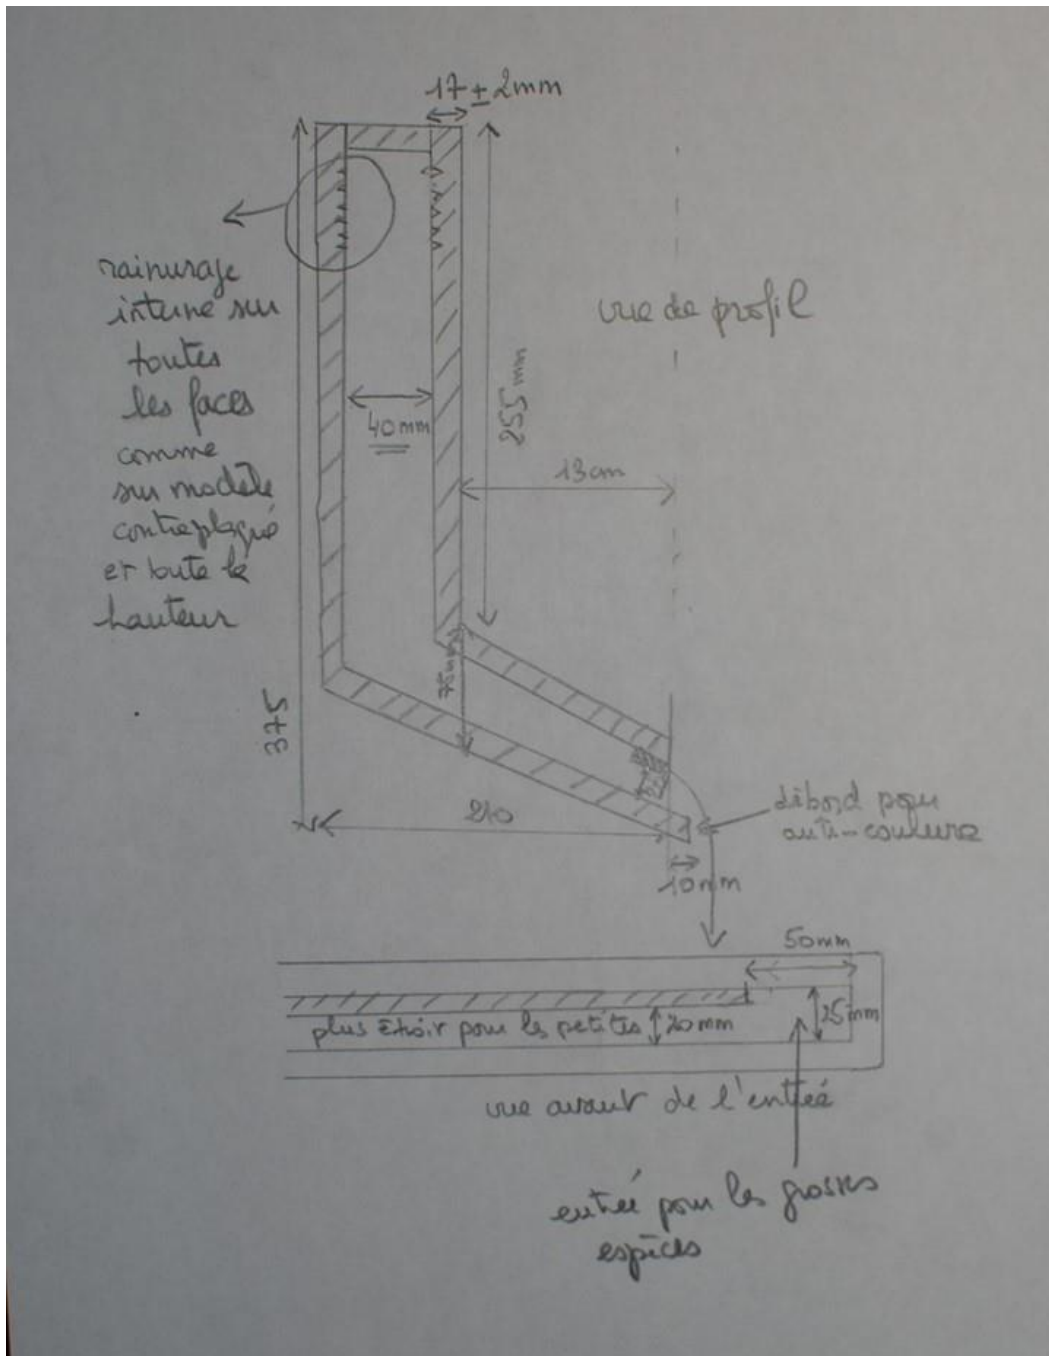 17 ± 2mm
rainurage
interne sur
toutes
les faces
comme
sur modèle
contreplaqué
et toute la
hauteur
vue de profil
40mm
255 mm
13cm
75mm
375
210
débord pour
anti-coulure
10mm
50mm
plus étroit pour les petites
20mm
25mm
vue avant de l'entrée
entrée pour les grosses
espèces